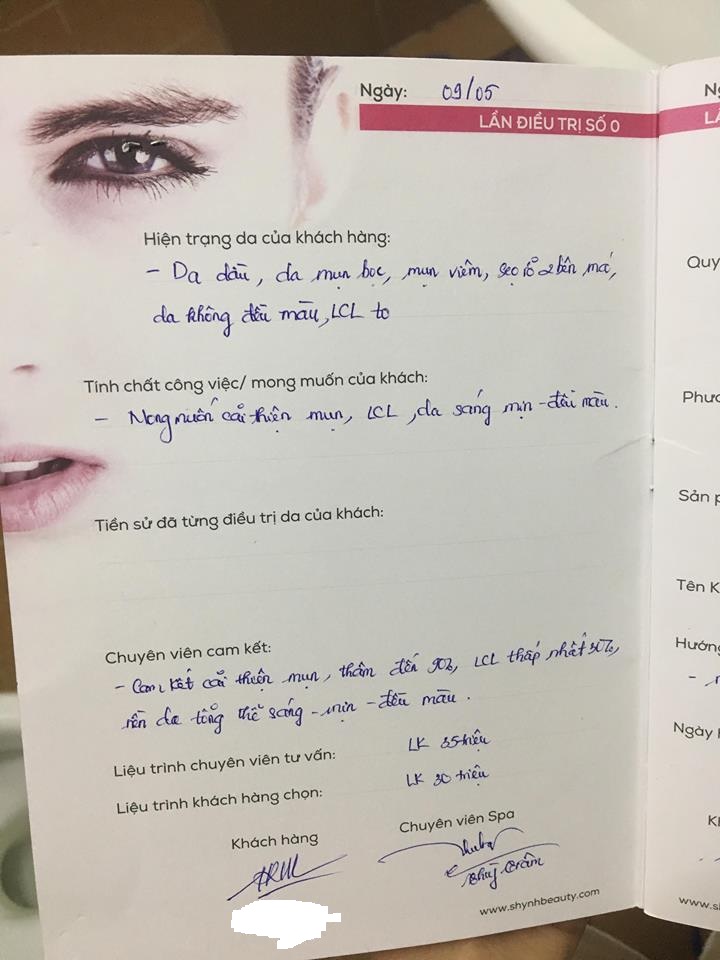 Ngày: 09/05
LẦN ĐIỀU TRỊ SỐ 0
Hiện trạng da của khách hàng:
- Da dầu, da mụn bọc, mụn viêm, sẹo rỗ 2 bên má,
da không đều màu, LCL to
Tính chất công việc/ mong muốn của khách:
- Mong muốn cải thiện mụn, LCL, da sáng mịn - đều màu.
Tiền sử đã từng điều trị da của khách:
Chuyên viên cam kết:
- Cam kết cải thiện mụn, thâm đến 90%, LCL thấp nhất 30%,
nền da tổng thể sáng - mịn - đều màu.
Liệu trình chuyên viên tư vấn: LK 35 triệu
Liệu trình khách hàng chọn: LK 30 triệu
Khách hàng
Chuyên viên Spa
www.shynhbeauty.com
Quy
Phươ
Sản p
Tên K
Hướng
Ngày
www.s